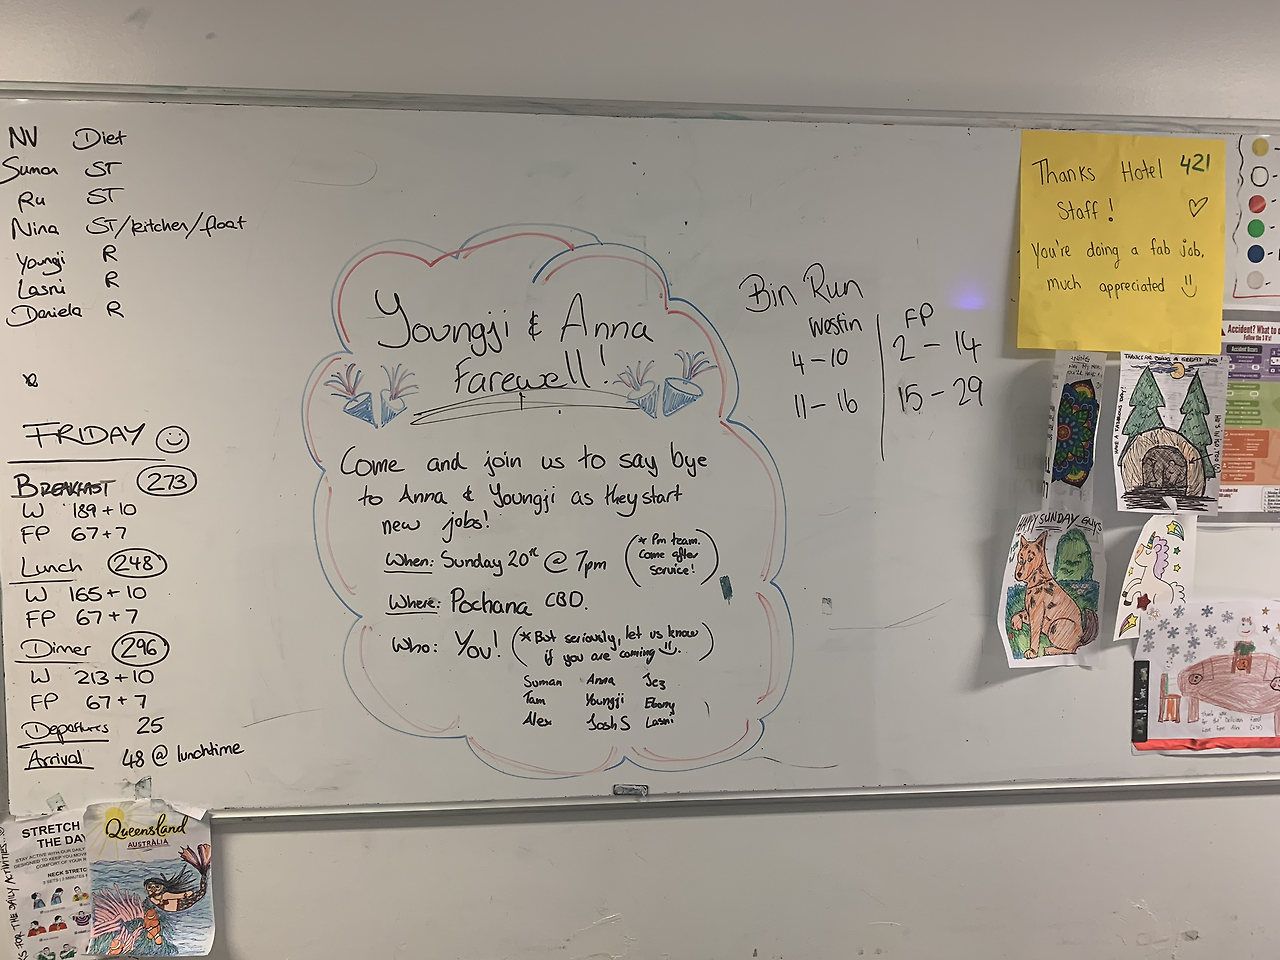 NV Diet
Suman ST
Ru ST
Nina ST/kitchen/float
Youngji R
Lasni R
Daniela R
FRIDAY
BREAKFAST 273
W 189 + 10
FP 67 + 7
Lunch 248
W 165 + 10
FP 67 + 7
Dinner 296
W 213 + 10
FP 67 + 7
Departures 25
Arrival 48 @ lunchtime
Youngji & Anna
Farewell!
Come and join us to say bye
to Anna & Youngji as they start
new jobs!
When: Sunday 20th @ 7pm
(* Pm team.
Come after
service!)
Where: Pochana CBD.
Who: You! (* But seriously, let us know
if you are coming
Suman Anna Jez
Tam Youngji Ebony
Alex Josh S Lasni
Bin Run
Westin FP
4 – 10 2 – 14
11 – 16 15 – 29
Thanks Hotel 421
Staff!
You're doing a fab job,
much appreciated
Accident? What to
Follow the 3 R's!
Accident Occurs
THANKS FOR DOING A GREAT JOB!
HAVE A FABULOUS DAY!
HAPPY SUNDAY GUYS
Thank you
for the delicious food
STRETCH
THE DAY
STAY ACTIVE WITH OUR DAILY
DESIGNED TO KEEP YOU MOVI
COMFORT OF YOUR
NECK STRETC
FOR THE DAILY ACTIVITIES
Queensland
AUSTRALIA